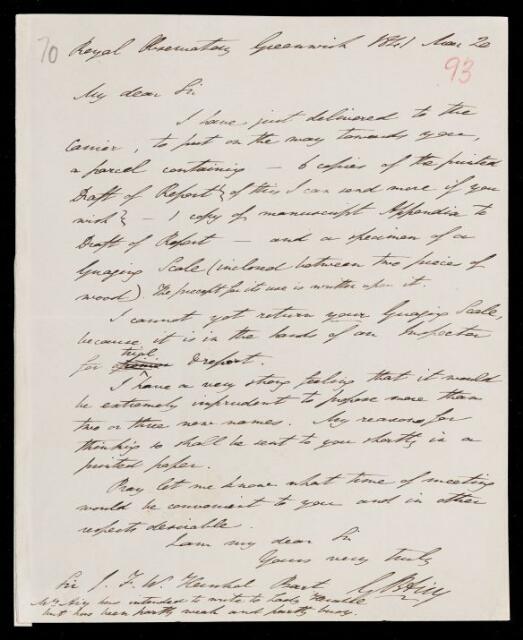 70 Royal Observatory Greenwich 1841 Mar 20
93
My dear Sir
I have just delivered to the
Carrier, to put on the way towards you,
a parcel containing — 6 copies of the printed
Draft of Report {of this I can send more if you
wish} — 1 copy of manuscript Appendix to
Draft of Report — and a specimen of a
Guaging Scale (inclosed between two pieces of
wood). The precept for its use is written upon it.
I cannot yet return your Guaging Scale,
because it is in the hands of an Inspector
for trial & report.
I have a very strong feeling that it would
be extremely imprudent to propose more than
two or three new names. My reasons for
thinking so shall be sent to you shortly in a
printed paper.
Pray let me know what time of meeting
would be convenient to you and in other
respects desirable.
I am my dear Sir
Yours very truly
Sir J. F. W. Herschel Bart G B Airy
Mrs Airy has intended to write to Lady Herschel
but has been partly weak and partly busy.